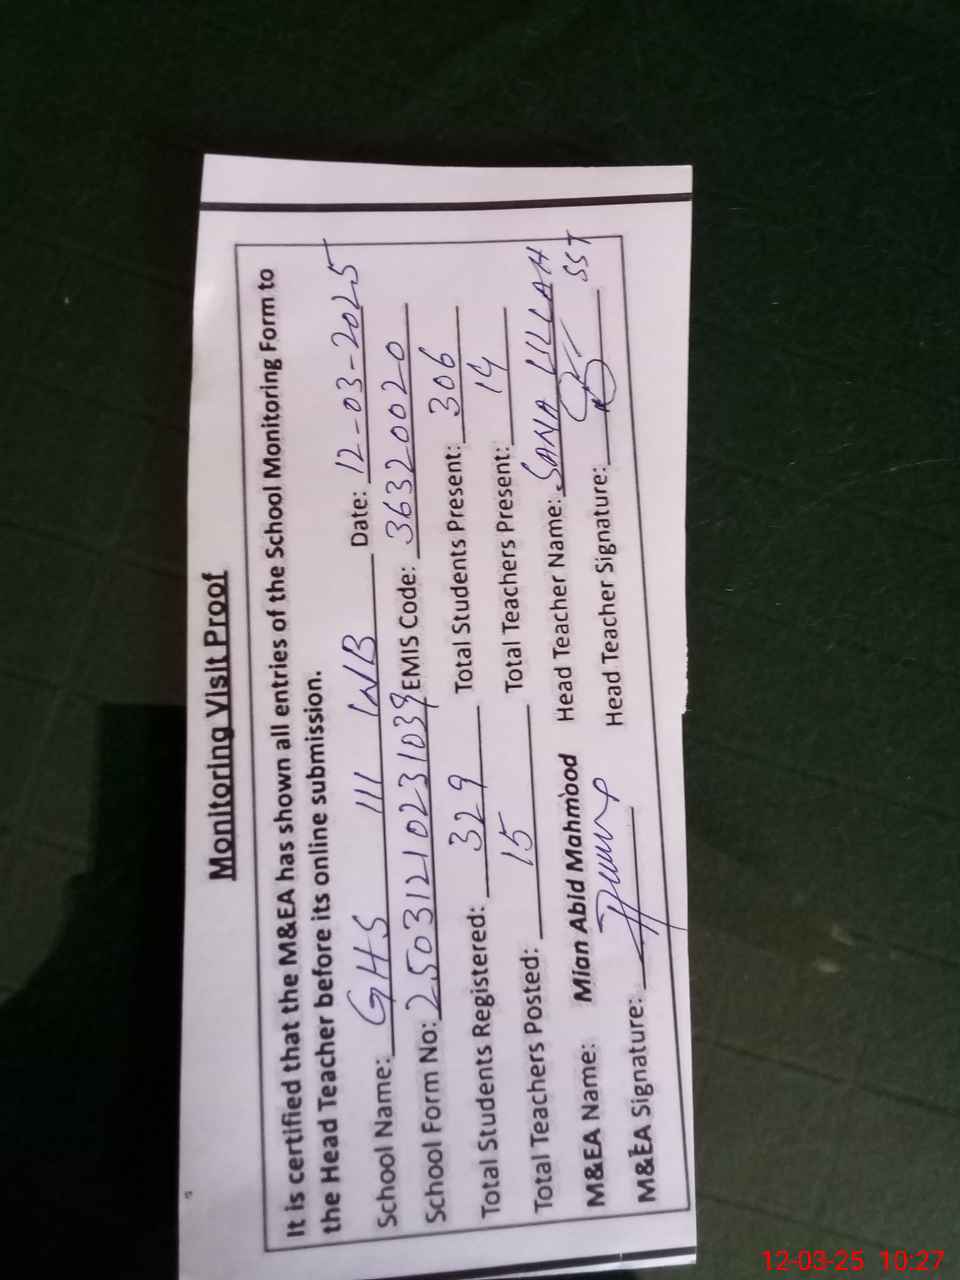 Monitoring Visit Proof
It is certified that the M&EA has shown all entries of the School Monitoring Form to
the Head Teacher before its online submission.
School Name: GHS 111 WB Date: 12-03-2025
School Form No: 25031210231039 EMIS Code: 36320020
Total Students Registered: 329 Total Students Present: 306
Total Teachers Posted: 15 Total Teachers Present: 14
M&EA Name: Mian Abid Mahmood Head Teacher Name: SANA LILLAH
M&EA Signature: Head Teacher Signature: SST
12-03-25 10:27